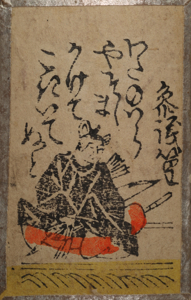 参議篁
わたのハら
やそしま
かけて
こきいて
ぬと